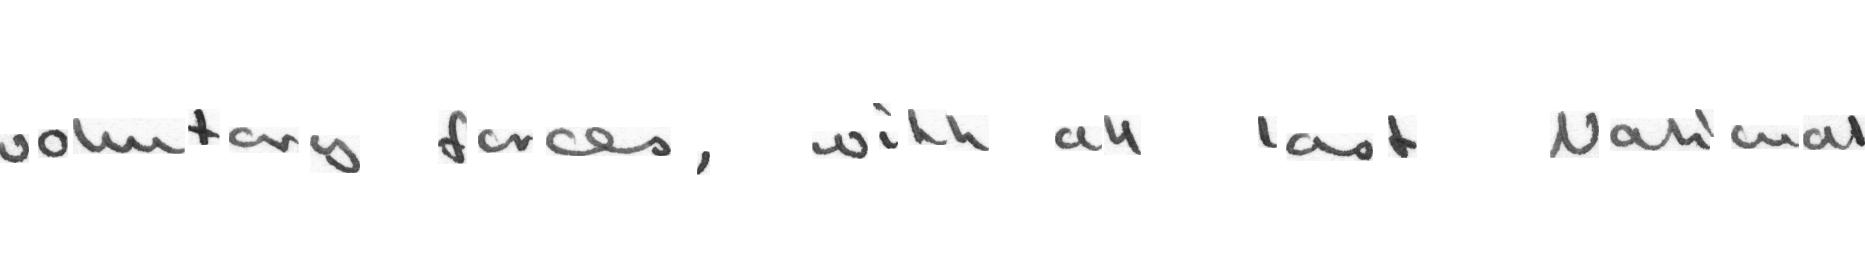 voluntary forces, with all last National